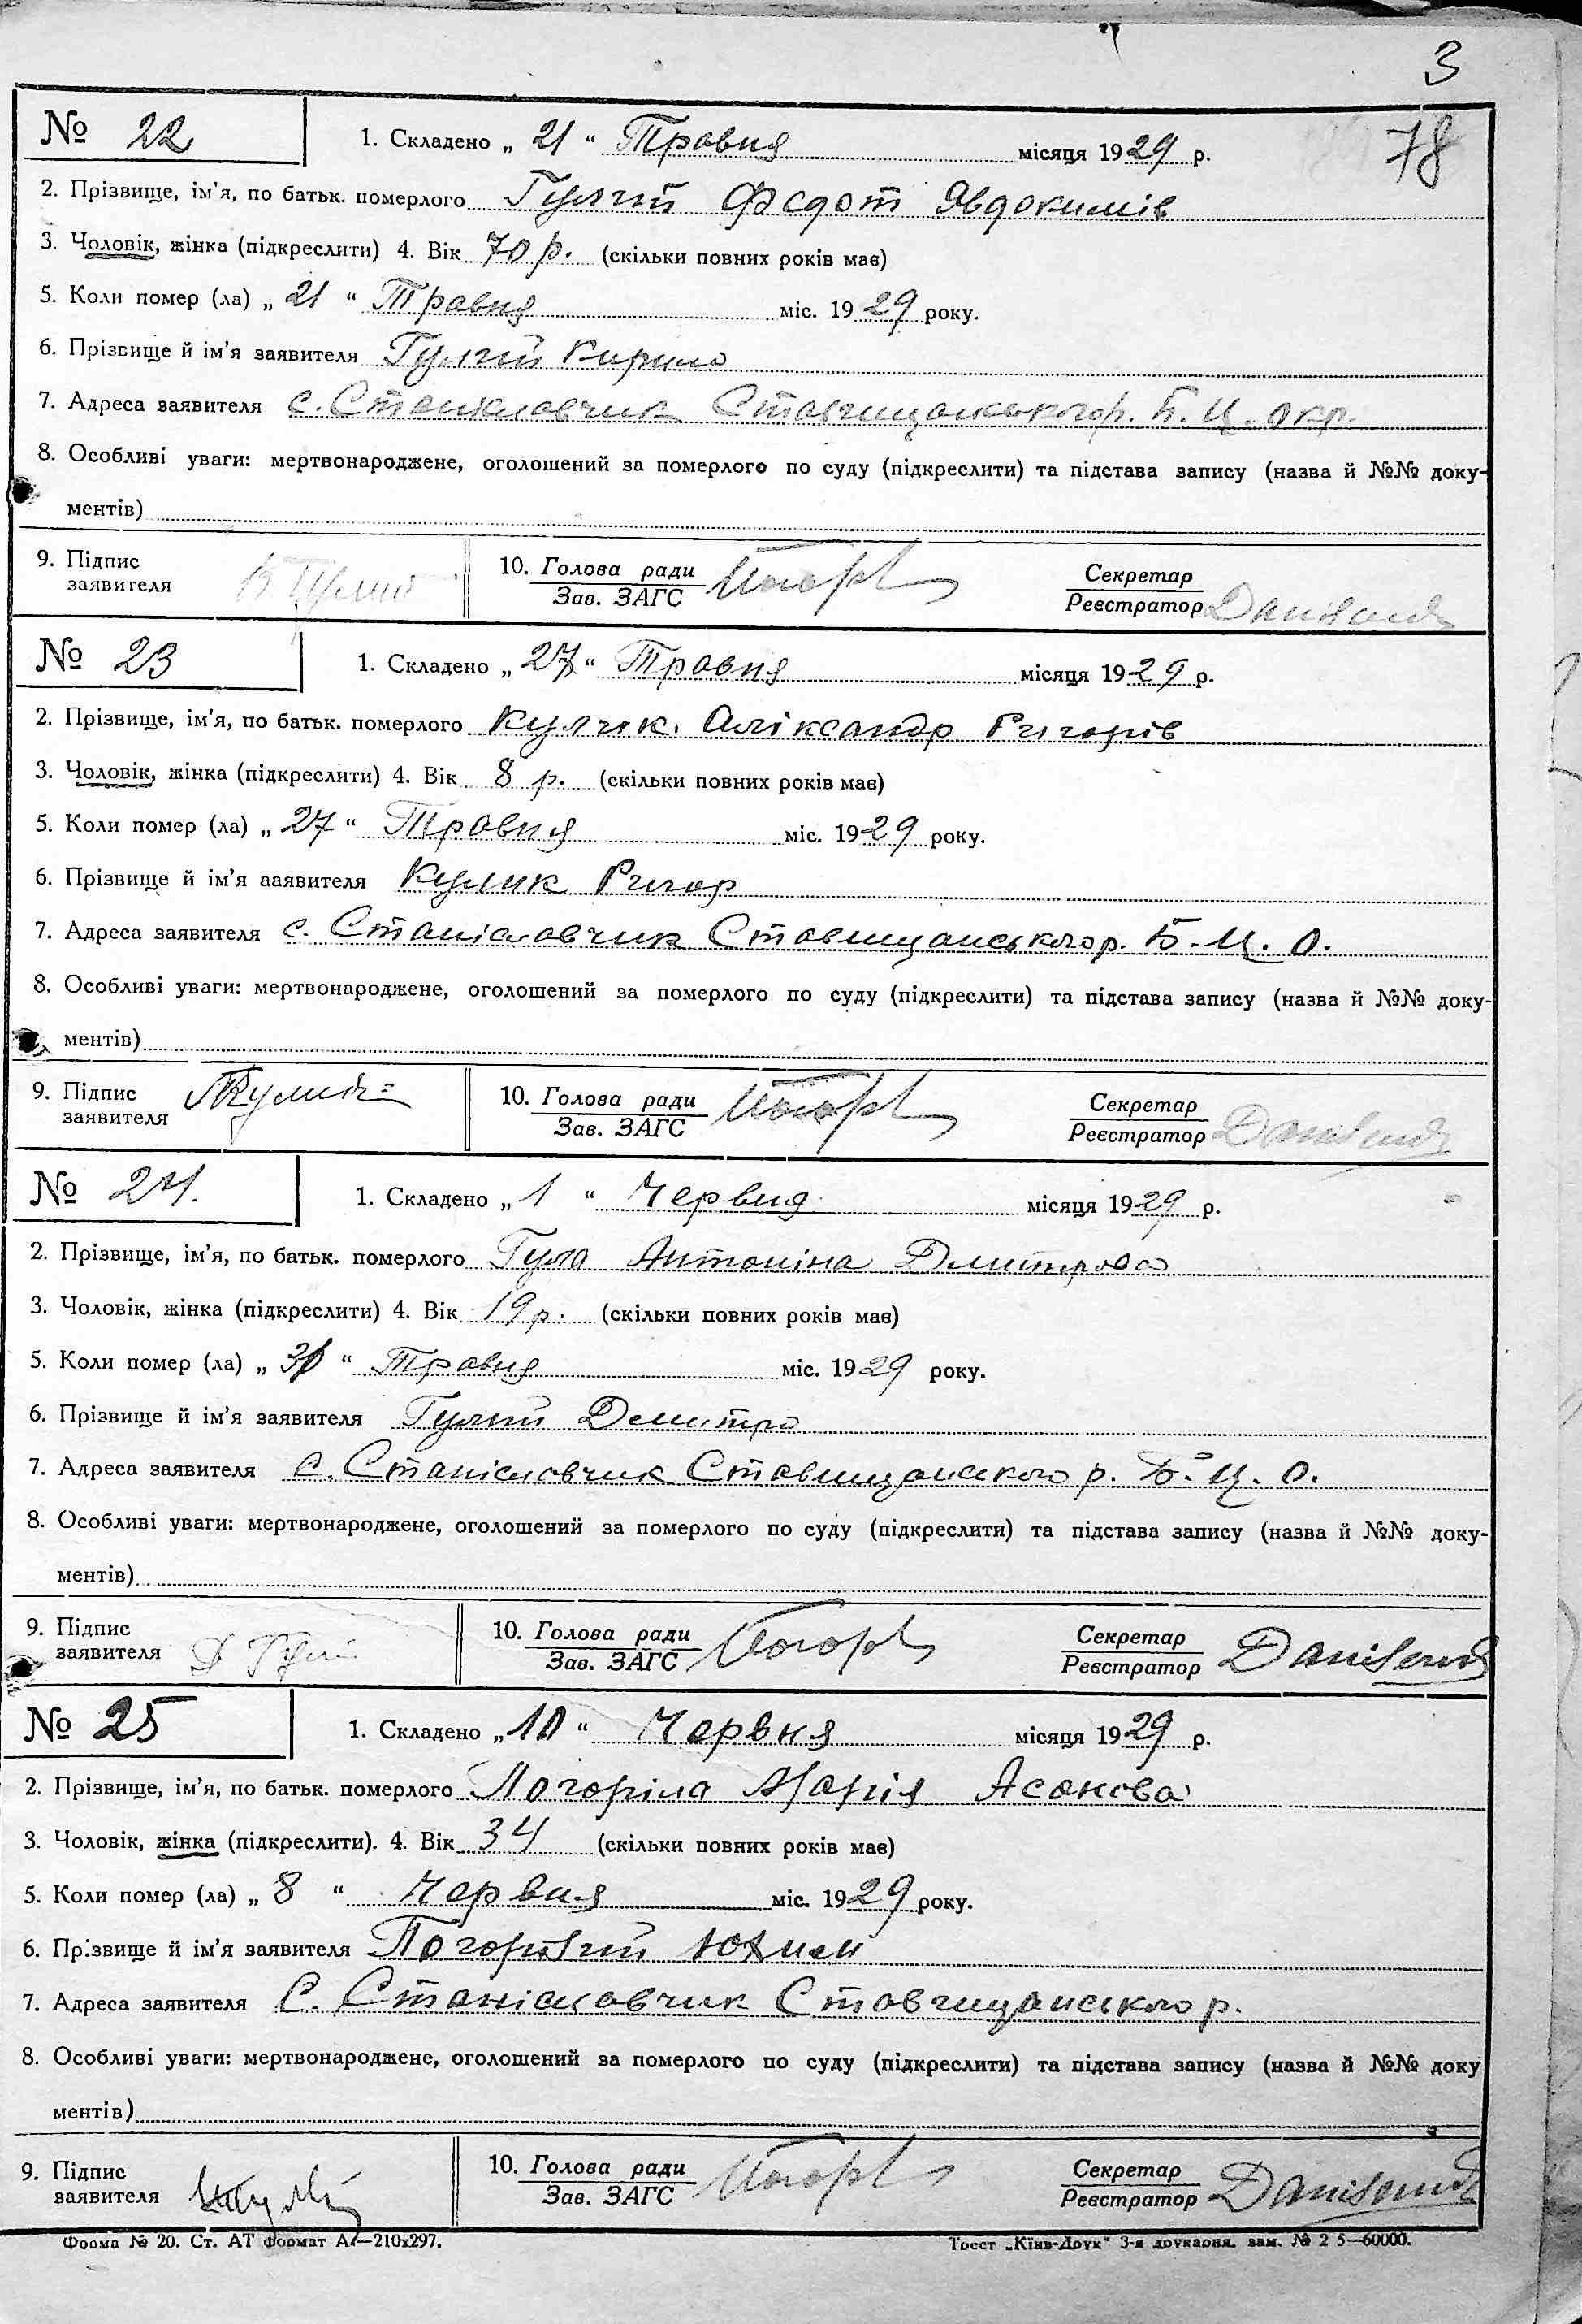 3
78
№ 22 1. Складено „ 21 “ Травня місяця 1929 р.
2. Прізвище, ім'я, по батьк. померлого Гулий Федот Явдокимів
3. Чоловік, жінка (підкреслити) 4. Вік 70 р. (скільки повних років має)
5. Коли помер (ла) „ 21 “ Травня міс. 1929 року.
6. Прізвище й ім'я заявителя Гулий Кирило
7. Адреса заявителя с. Станіславчик Ставищанського р. Б. Ц. окр.
8. Особливі уваги: мертвонароджене, оголошений за померлого по суду (підкреслити) та підстава запису (назва й №№ доку-
ментів)
9. Підпис заявителя К Гулий 10. Голова ради Секретар
Зав. ЗАГС Реєстратор
№ 23 1. Складено „ 27 “ Травня місяця 1929 р.
2. Прізвище, ім'я, по батьк. померлого Кулик Аліксандр Григорів
3. Чоловік, жінка (підкреслити) 4. Вік 8 р. (скільки повних років має)
5. Коли помер (ла) „ 27 “ Травня міс. 1929 року.
6. Прізвище й ім'я заявителя Кулик Григор
7. Адреса заявителя с. Станіславчик Ставищанського р. Б. Ц. О.
8. Особливі уваги: мертвонароджене, оголошений за померлого по суду (підкреслити) та підстава запису (назва й №№ доку-
ментів)
9. Підпис заявителя Г Кулик 10. Голова ради Секретар
Зав. ЗАГС Реєстратор
№ 24. 1. Складено „ 1 “ Червня місяця 1929 р.
2. Прізвище, ім'я, по батьк. померлого Гула Антоніна Дмитрова
3. Чоловік, жінка (підкреслити) 4. Вік 19 р. (скільки повних років має)
5. Коли помер (ла) „ “ Травня міс. 1929 року.
6. Прізвище й ім'я заявителя Гулий Демитро
7. Адреса заявителя с. Станіславчик Ставищанського р. Б. Ц. О.
8. Особливі уваги: мертвонароджене, оголошений за померлого по суду (підкреслити) та підстава запису (назва й №№ доку-
ментів)
9. Підпис заявителя Д Гулий 10. Голова ради Секретар
Зав. ЗАГС Реєстратор
№ 25 1. Складено „ 10 “ Червня місяця 1929 р.
2. Прізвище, ім'я, по батьк. померлого Погоріла Марія Асонова
3. Чоловік, жінка (підкреслити). 4. Вік 34 (скільки повних років має)
5. Коли помер (ла) „ 8 “ Червня міс. 1929 року.
6. Прізвище й ім'я заявителя Погорілий Юхим
7. Адреса заявителя С. Станіславчик Ставищанського р.
8. Особливі уваги: мертвонароджене, оголошений за померлого по суду (підкреслити) та підстава запису (назва й №№ доку
ментів)
9. Підпис заявителя 10. Голова ради Секретар
Зав. ЗАГС Реєстратор
Форма № 20. Ст. АТ формат А4—210х297. Трест „Київ-Друк“ 3-я друкарня. зам. № 2 5—60000.